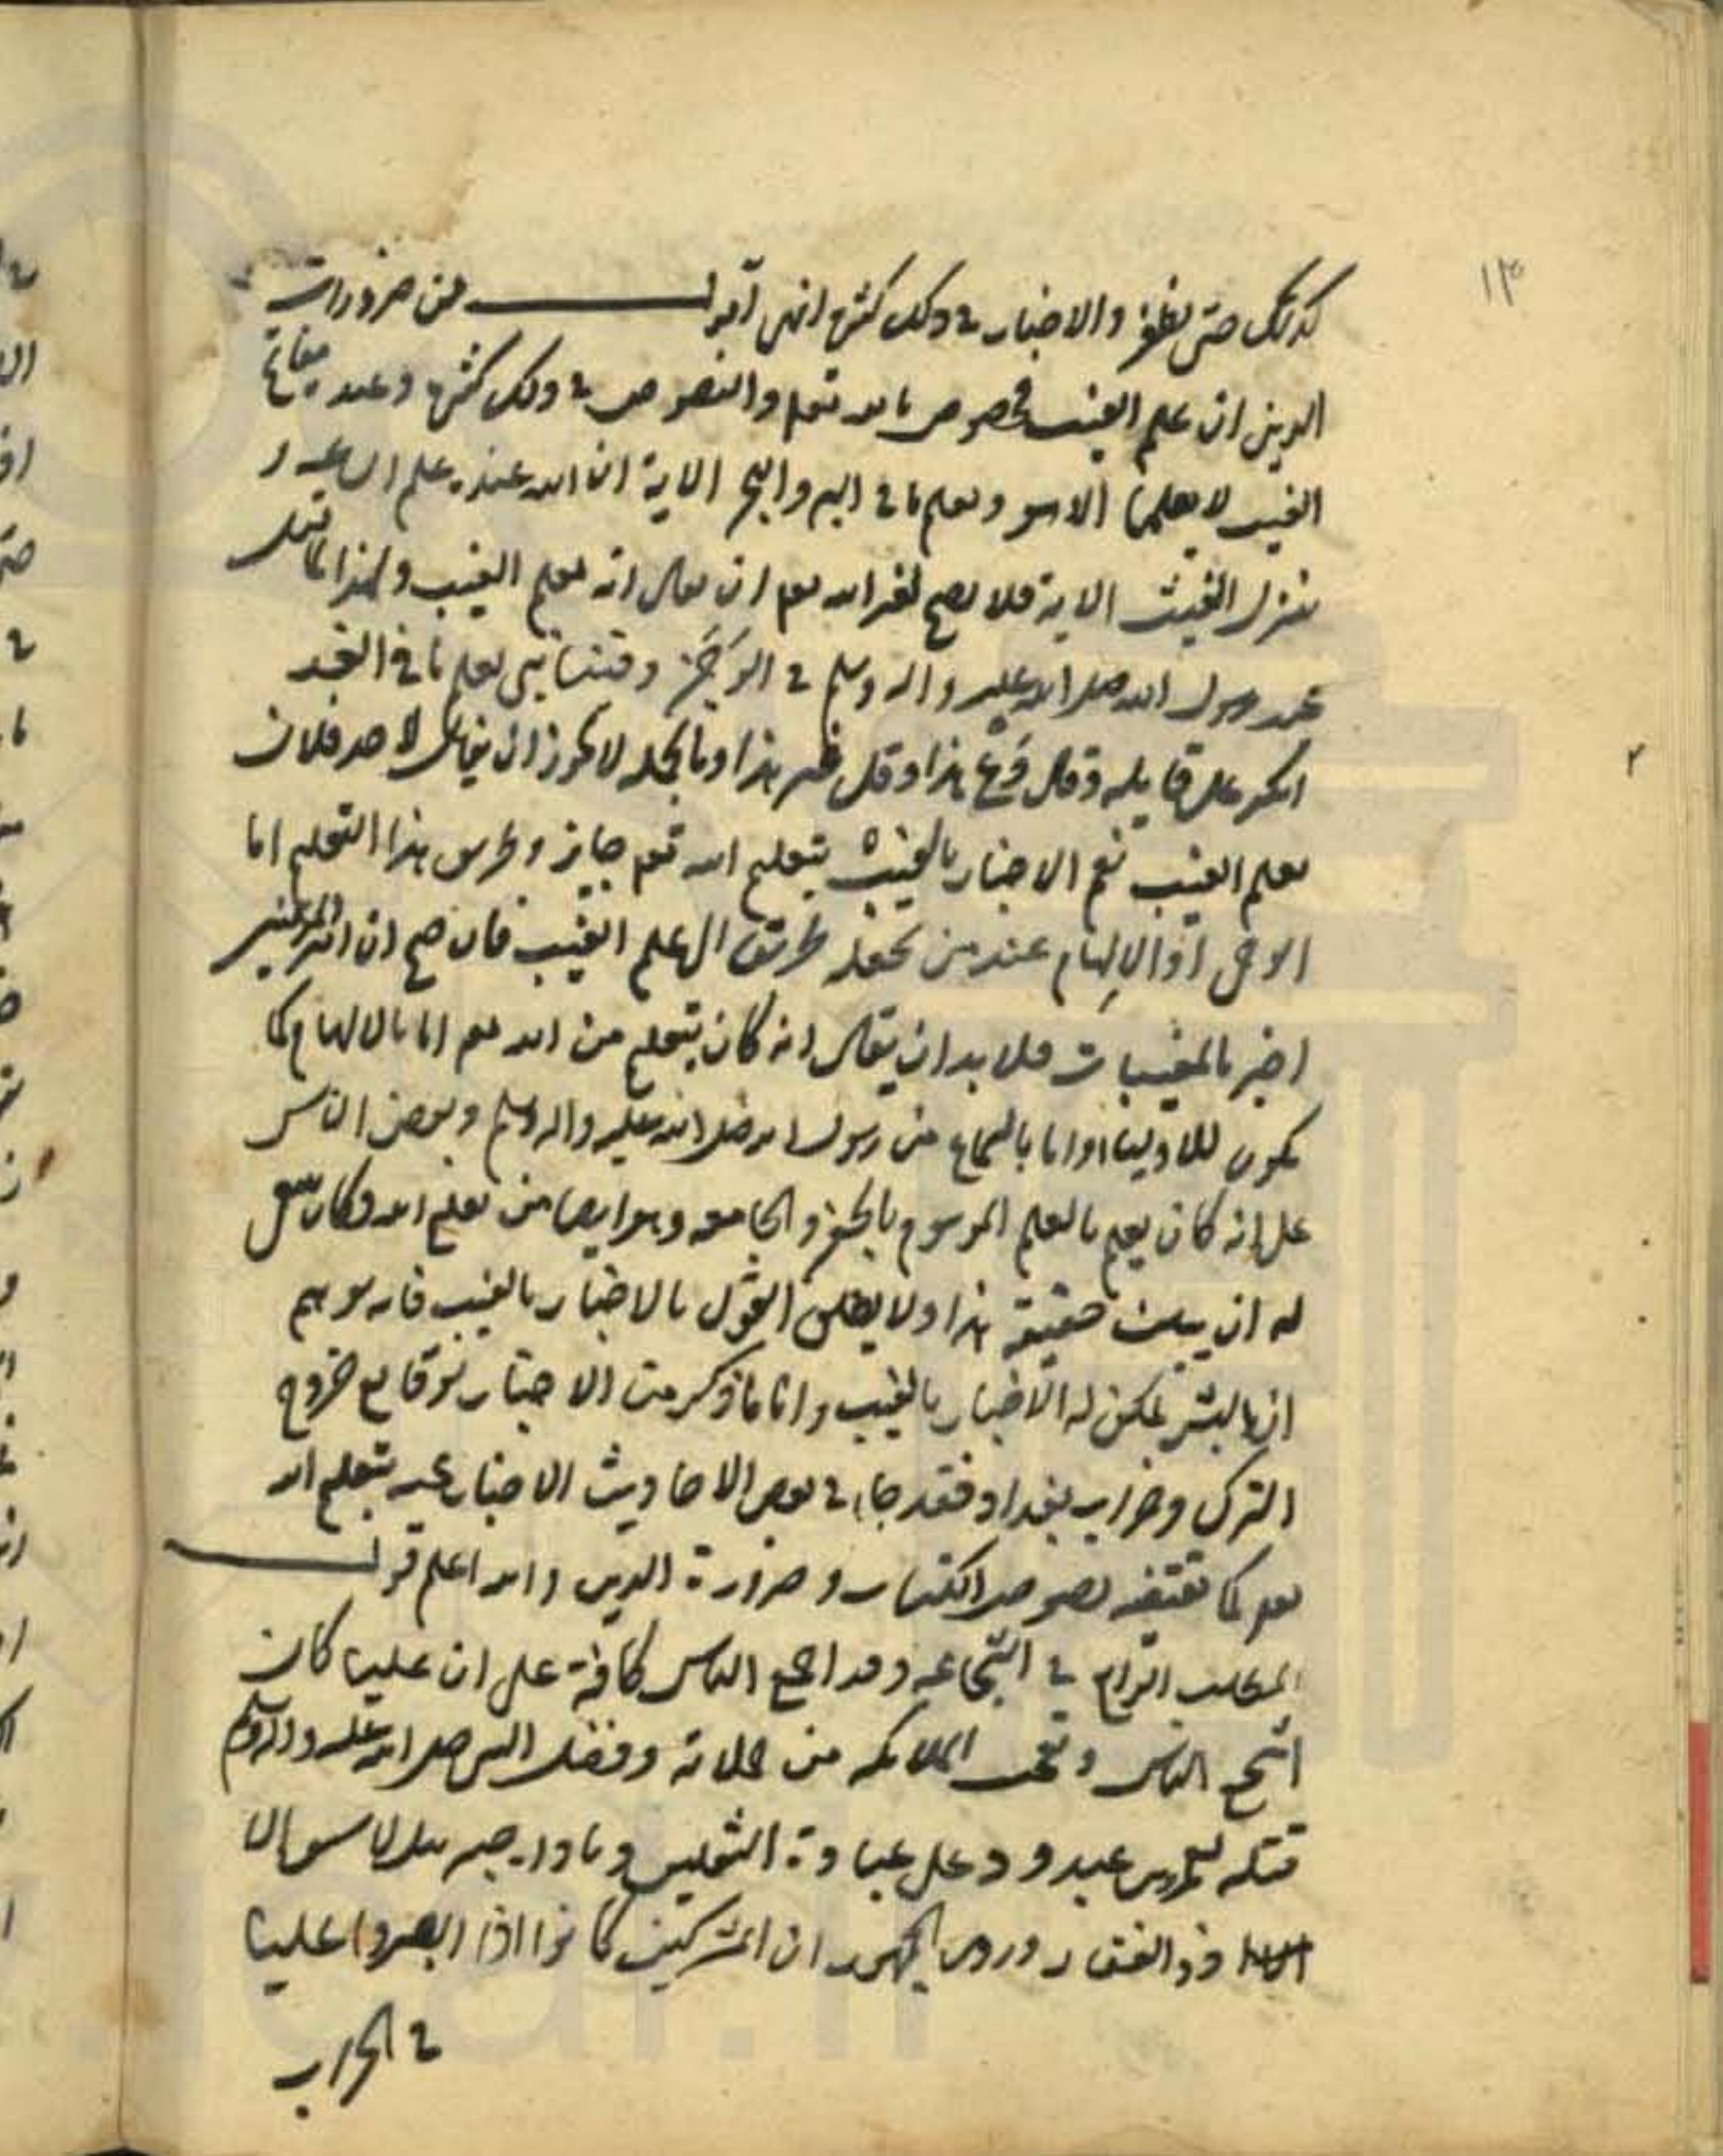 ١٣
كذلك حتى يظفر والاخبار في ذلك كثيرة انتهى اقول من ضرورات
الدين ان علم الغيب مخصوص بالله تعم والنصوص في ذلك كثيرة وعنده مفاتح
الغيب لا يعلمها الا هو ويعلم ما في البر والبحر الاية ان الله عنده علم الساعة و
ينزل الغيث الاية فلا يصح لغير الله تعم ان يقال انه يعلم الغيب ولهذا لما قيل
عند رسول الله صلى الله عليه واله وسلم في الرجز وفينا نبي يعلم ما في الغد
انكر على قايله وقال دع هذا وقل غير هذا وبالجملة لا يجوز ان يقال لاحد فلان
يعلم الغيب نعم الاخبار بالغيب بتعليم الله تعم جايز وطريق هذا التعليم اما
الوحي او الالهام عند من يجعله طريقا الى علم الغيب فان صح ان امير المؤمنين
اخبر بالمغيبات فلا بد ان يقال انه كان بتعليم من الله تعم اما بالالهام كما
يكون للاوليا او اما بالسماع من رسول الله صلى الله عليه واله وسلم وبعض الناس
على انه كان يعلم بالعلم الموسوم بالجفر والجامعه وهو ايضا من تعليم الله وكان ينبغي
له ان يبين حقيقة هذا ولا يطلق القول بالاخبار بالغيب فانه يوهم
ان البشر يمكن له الاخبار بالغيب واما ما ذكر من الاخبار بوقايع خروج
الترك وخراب بغداد فقد جاء في بعض الاحاديث الاخبار عنه بتعليم الله
تعم كما تقتضيه نصوص الكتاب وضرورة الدين والله اعلم قوله
المطلب الرابع في الشجاعه وقد اجمع الناس كافة على ان عليا كان
اشجع الناس وتعجب الملائكه من حملاته وفضل النبي صلى الله عليه واله وسلم
قتله لعمرو بن عبد ود على عبادة الثقلين ونادى جبرئيل لا سيف الا
ذو الفقار وروى الجمهور ان المشركين كانوا اذا ابصروا عليا
في الحراب